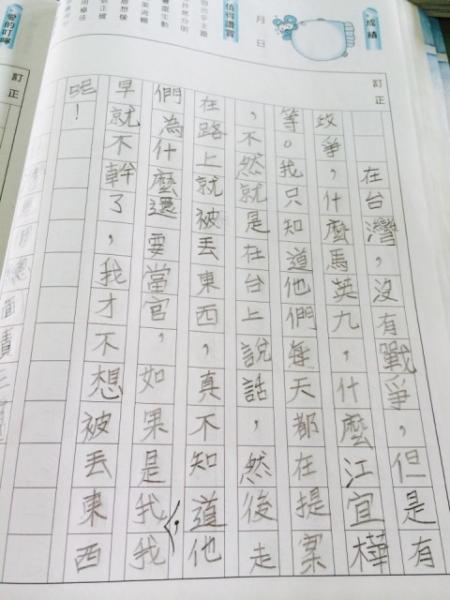 成績
月 日
值得讚賞
愛的叮嚀
訂正
在台灣，沒有戰爭，但是有
政爭，什麼馬英九，什麼江宜樺
等。我只知道他們每天都在提案
，不然就是在台上說話，然後走
在路上就被丟東西，真不知道他
們為什麼還要當官，如果是我，我
早就不幹了，我才不想被丟東西
呢！
訂正